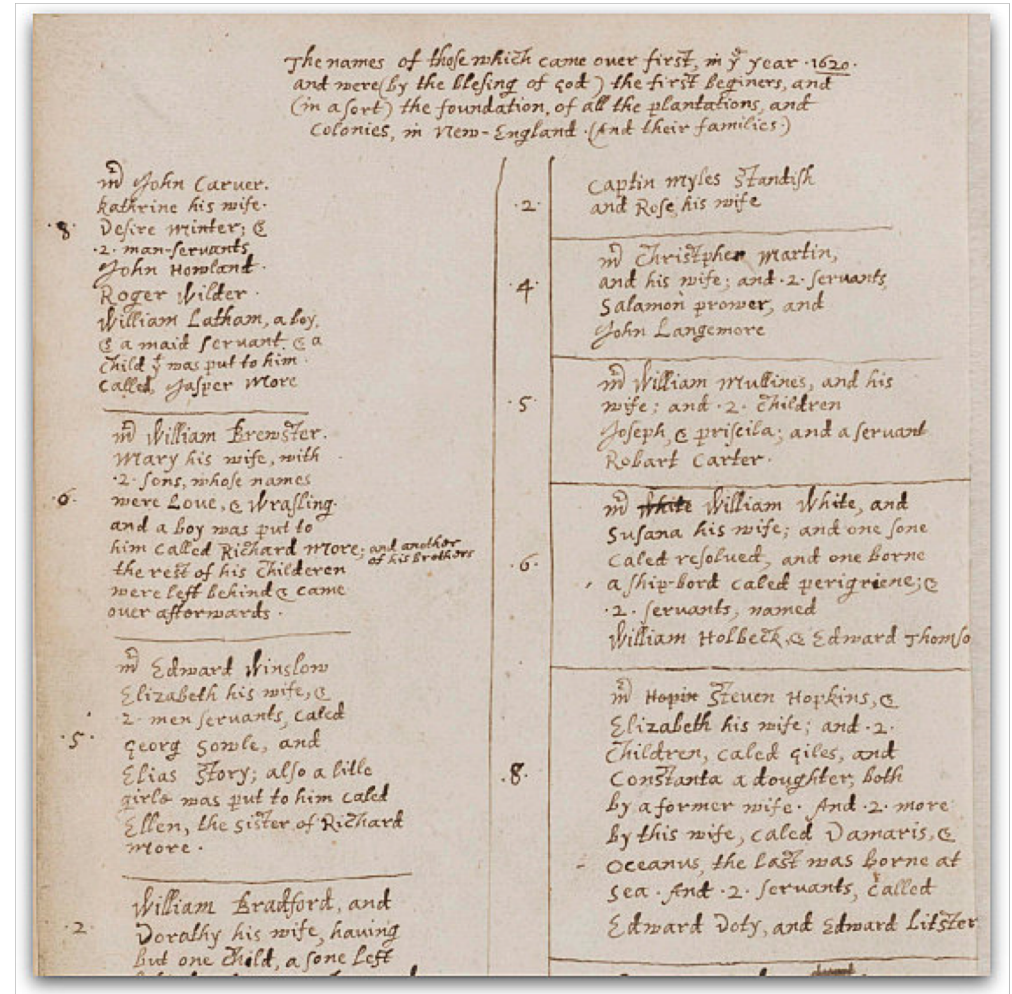 The names of those which came over first, in yͤ year ·1620·
and were (by the blesing of god) the first beginers, and
(in a sort) the foundation, of all the plantations, and
Colonies, in New-England. (And their families.)
mʳ John Carver.
kathrine his wife.
·8· Desire Minter; &
·2· man-servants
John Howland.
Roger Wilder.
William Latham, a boy,
& a maid servant. & a
child yᵗ was put to him
called, Jasper More
mʳ William Brewster.
Mary his wife, with
·2· sons, whose names
·6· were Love, & Wrasling.
and a boy was put to
him called Richard More; and another
of his Brothers
the rest of his Childeren
were left behind & came
over afterwards.
mʳ Edward Winslow
Elizabeth his wife, &
·2· men servants, caled
·5· Georg Sowle, and
Elias Story; also a litle
girle was put to him caled
Ellen, the sister of Richard
More.
William Bradford, and
·2· Dorathy his wife, having
but one Child, a sone left
Captin Myles Standish
·2· and Rose, his wife
mʳ Christpher Martin,
·4· and his wife; and ·2· servants,
Salamon prower, and
John Langemore
mʳ William Mullines, and his
·5· wife; and ·2· Children
Joseph, & priscila; and a servant
Robart Carter.
mʳ White William White, and
Susana his wife; and one sone
·6· caled resolved, and one borne
a ship-bord caled perigriene; &
·2· servants, named
William Holbeck, & Edward Thomso
mʳ Hopin Steven Hopkins, &
Elizabeth his wife; and ·2·
Children, caled Giles, and
·8· Constanta a doughter, both
by a former wife. And ·2· more
by this wife, caled Damaris, &
Oceanus, the last was borne at
sea. And ·2· servants, called
Edward Doty, and Edward Litster